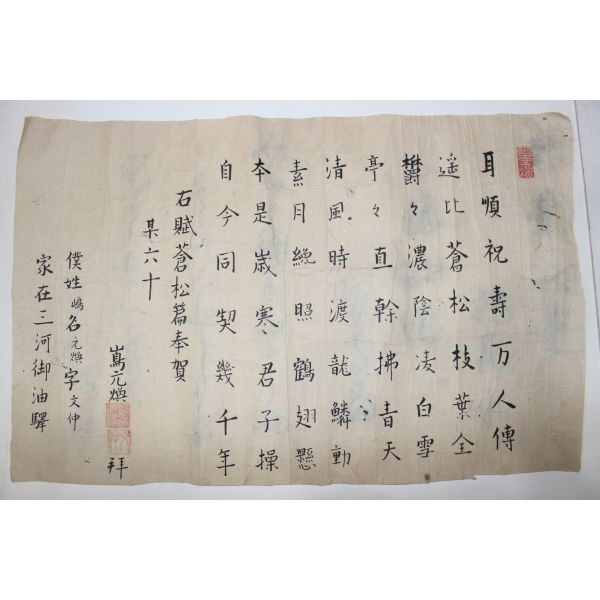 耳順祝壽万人傳
遥比蒼松枝葉全
欝々濃陰凌白雪
亭々直幹拂青天
清風時渡龍鱗動
素月絶照鶴翅懸
本是歳寒君子操
自今同契幾千年
右賦蒼松篇奉賀
某六十
嶌元煥 拜
僕姓嶋名元煥字文仲
家在三河御油驛